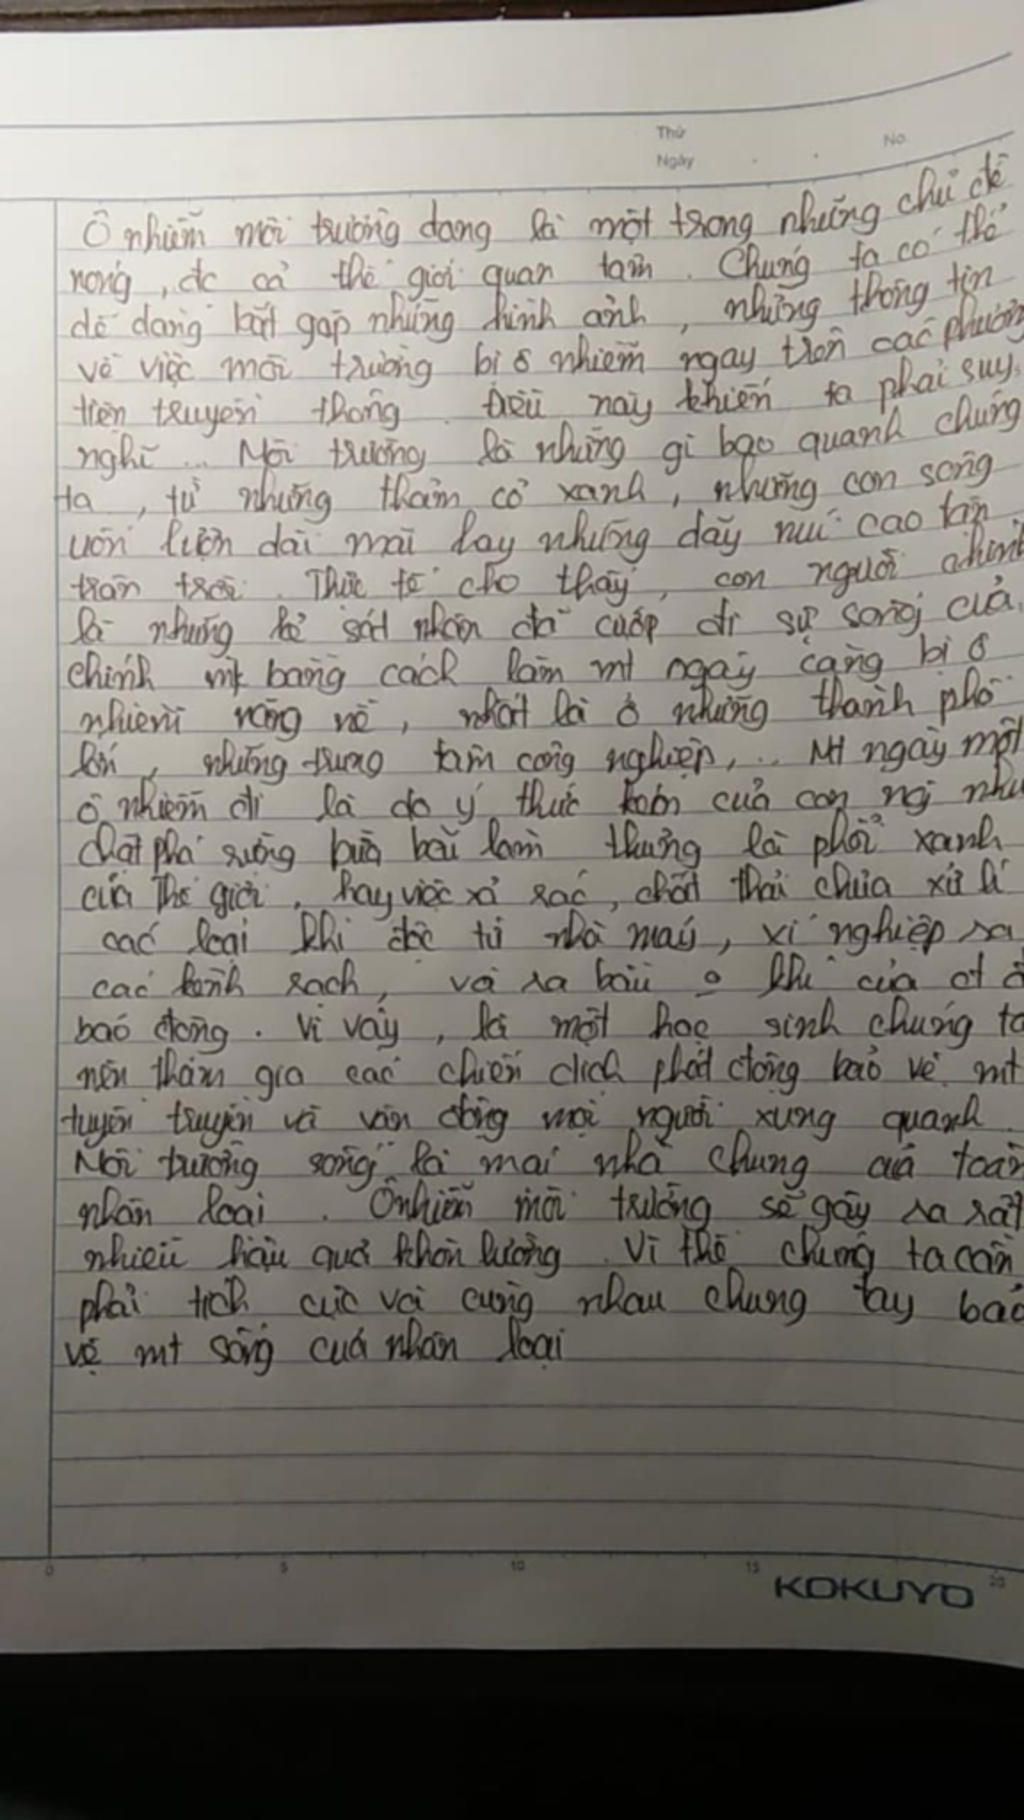 Thứ
Ngày
No.
Ô nhiễm môi trường đang là một trong những chủ đề
nóng, đc cả thế giới quan tâm. Chúng ta có thể
dễ dàng bắt gặp những hình ảnh, những thông tin
về việc môi trường bị ô nhiễm ngay trên các phương
tiện truyền thông. Điều này khiến ta phải suy
nghĩ... Môi trường là những gì bao quanh chúng
ta, từ những thảm cỏ xanh, những con sông
uốn lượn dài mãi hay những dãy núi cao lan
tràn trời. Thực tế cho thấy, con người chính
là những kẻ sát nhân đã cướp đi sự sống của
chính mk bằng cách làm mt ngày càng bị ô
nhiễm nặng nề, nhất là ở những thành phố
lớn, những trung tâm công nghiệp,... Mt ngày một
ô nhiễm đi là do ý thức kém của con ng như
chặt phá rừng bừa bãi làm thủng lá phổi xanh
của thế giới, hay việc xả rác, chất thải chưa xử lí
các loại khí độc từ nhà máy, xí nghiệp ra
các kênh rạch, và ra bầu o khí của
báo động. Vì vậy, là một học sinh chúng ta
nên tham gia các chiến dịch phát động bảo vệ mt
tuyên truyền và vận động mọi người xung quanh.
Môi trường sống là mái nhà chung của toàn
nhân loại. Ô nhiễm môi trường sẽ gây ra rất
nhiều hậu quả khôn lường. Vì thế chúng ta cần
phải tích cực và cùng nhau chung tay bảo
vệ mt sống của nhân loại
0 5 10 15 20
KOKUYO